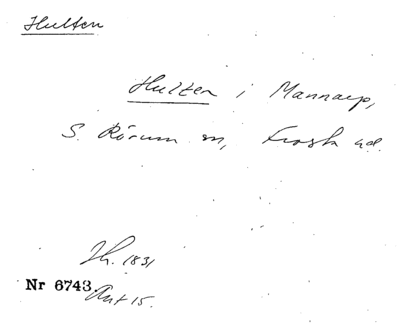 Hulten
Hulten i Mannarp,
S. Rörum sn, Frosta hd.
Th. 1831
Nr 6743. Ant 15.